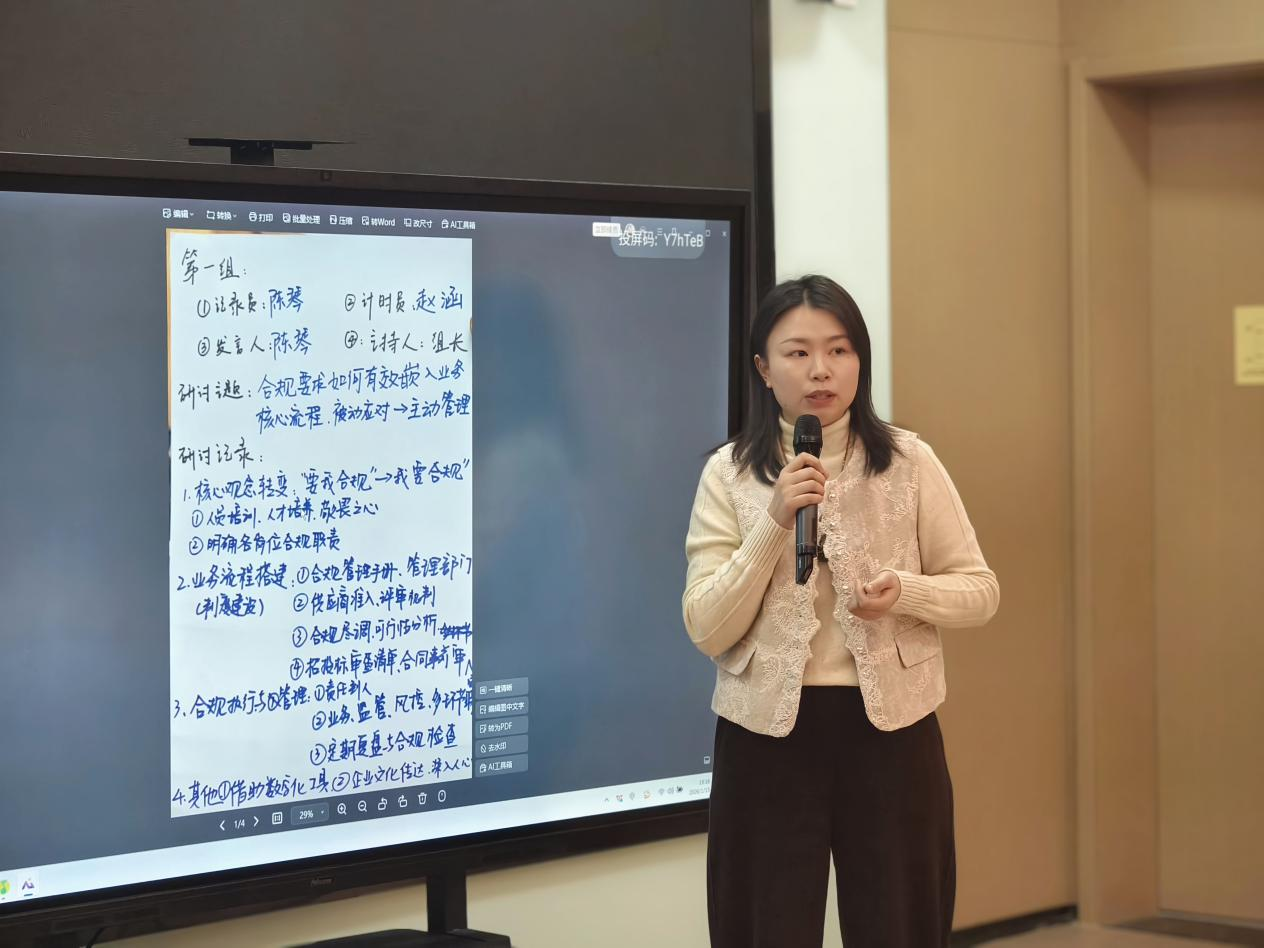 编辑 转换 打印 批量处理 压缩 转Word 改尺寸 AI工具箱
投屏码: Y7hTeB
第一组:
①记录员:陈琴 ②计时员:赵涵
③发言人:陈琴 ④:主持人:组长
研讨主题:合规要求如何有效嵌入业务
核心流程,被动应对→主动管理
研讨记录:
1.核心观念转变:"要我合规"→我要合规"
①人员培训、人才培养、敬畏之心
②明确各岗位合规职责
2.业务流程搭建:①合规管理手册、管理部门
(制度建设) ②供应商准入、评审机制
③合规尽调,可行性分析
④招投标审查清单、合同事前审
3.合规执行与管理:①责任到人
②业务、监管、风控,多环节
③定期复盘与合规检查
4.其他①借助数字化工具②企业文化传达,深入人心
一键清晰
编辑图中文字
转为PDF
去水印
AI工具箱
1/4 29%